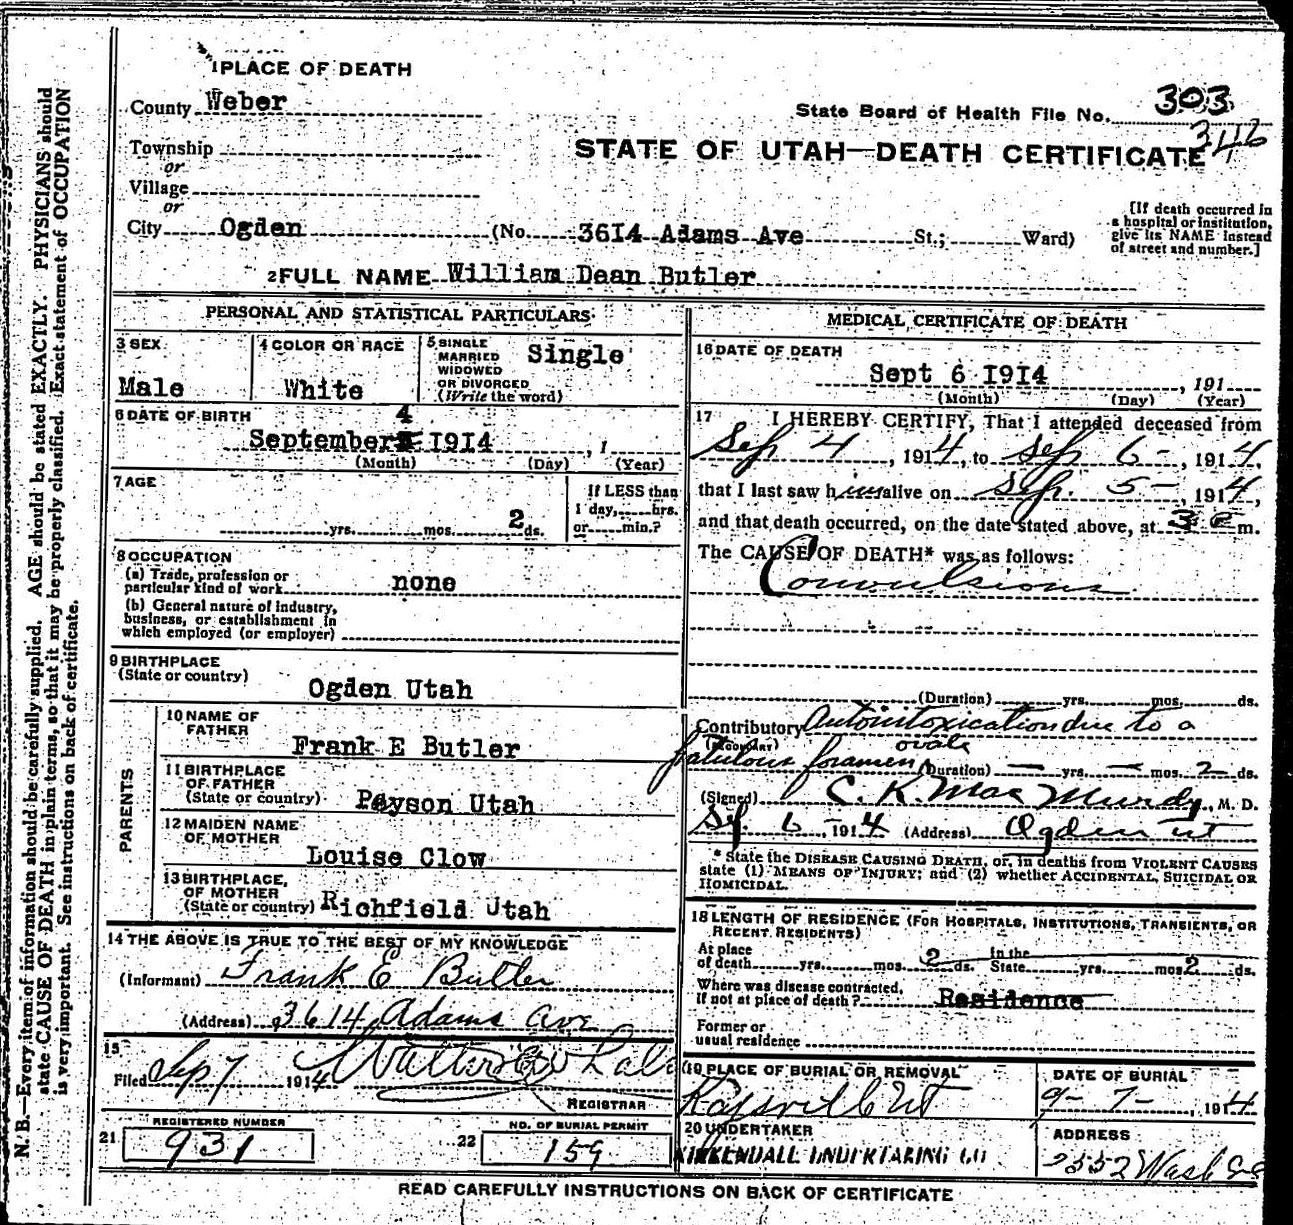 1 PLACE OF DEATH
County Weber
State Board of Health File No. 303
346
Township
or
Village
or
City Ogden (No. 3614 Adams Ave St.; Ward)
STATE OF UTAH—DEATH CERTIFICATE
[If death occurred in
a hospital or institution,
give its NAME instead
of street and number.]
2 FULL NAME William Dean Butler
PERSONAL AND STATISTICAL PARTICULARS
3 SEX
Male
4 COLOR OR RACE
White
5 SINGLE
MARRIED
WIDOWED
OR DIVORCED
(Write the word)
Single
6 DATE OF BIRTH
4
September 1914 , 1
(Month) (Day) (Year)
7 AGE
yrs. mos. 2 ds.
If LESS than
1 day, hrs.
or min.?
8 OCCUPATION
(a) Trade, profession or
particular kind of work none
(b) General nature of industry,
business, or establishment in
which employed (or employer)
9 BIRTHPLACE
(State or country)
Ogden Utah
PARENTS
10 NAME OF
FATHER
Frank E Butler
11 BIRTHPLACE
OF FATHER
(State or country) Payson Utah
12 MAIDEN NAME
OF MOTHER
Louise Clow
13 BIRTHPLACE,
OF MOTHER
(State or country) Richfield Utah
14 THE ABOVE IS TRUE TO THE BEST OF MY KNOWLEDGE
(Informant) Frank E Butler
(Address) 3614 Adams Ave
15
Filed Sep 7 1914 Walter
REGISTRAR
REGISTERED NUMBER
21 931
NO. OF BURIAL PERMIT
22 159
MEDICAL CERTIFICATE OF DEATH
16 DATE OF DEATH
Sept 6 1914 , 191
(Month) (Day) (Year)
17 I HEREBY CERTIFY, That I attended deceased from
Sep 4 , 1914, to Sep 6- , 1914,
that I last saw him alive on Sep. 5- , 1914,
and that death occurred, on the date stated above, at 3 m.
The CAUSE OF DEATH* was as follows:
Convulsions
(Duration) yrs. mos. ds.
Contributory Autointoxication due to a
(Secondary)
ovale
patulous foramen (Duration) — yrs. — mos. 2 ds.
(Signed) C. K. Mac Murdy, M. D.
Sep. 6- , 1914 (Address) Ogden Ut
* State the DISEASE CAUSING DEATH, or, in deaths from VIOLENT CAUSES
state (1) MEANS OF INJURY; and (2) whether ACCIDENTAL, SUICIDAL OR
HOMICIDAL.
18 LENGTH OF RESIDENCE (FOR HOSPITALS, INSTITUTIONS, TRANSIENTS, OR
RECENT RESIDENTS)
At place
of death yrs. mos. 2 ds.
In the
State yrs. mos. 2 ds.
Where was disease contracted,
if not at place of death? Residence
Former or
usual residence
19 PLACE OF BURIAL OR REMOVAL
Kaysville Ut
DATE OF BURIAL
9- 7- , 1914
20 UNDERTAKER
KIRKENDALL UNDERTAKING CO
ADDRESS
2552 Wash
READ CAREFULLY INSTRUCTIONS ON BACK OF CERTIFICATE
N. B.—Every item of information should be carefully supplied. AGE should be stated EXACTLY. PHYSICIANS should
state CAUSE OF DEATH in plain terms, so that it may be properly classified. Exact statement of OCCUPATION
is very important. See instructions on back of certificate.